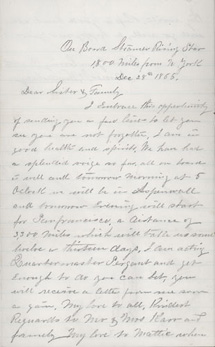 On Board Steamer Rising Star
1800 Miles from N York
Dec 28th 1865.
Dear Sister & Family
I embrace the opportunity
of sending you a few lines to let you
see you are not forgotten, I am in
good health and spirits. We have had
a splended voige so far, all on board
is well and tomorrow morning at 5
Oclock we will be in Aspinwall
and tomorrow Evening will start
for Sanfrancisco, a distance of
3300 Miles which will take us some
twelve or thirteen days, I am acting
Quartermaster Sergant and get
enough to do you can bet, you
will receive a letter from me once
a gain, My love to all, Kindest
Reguards to Mr & Mrs Karr and
family My love to Mattie when